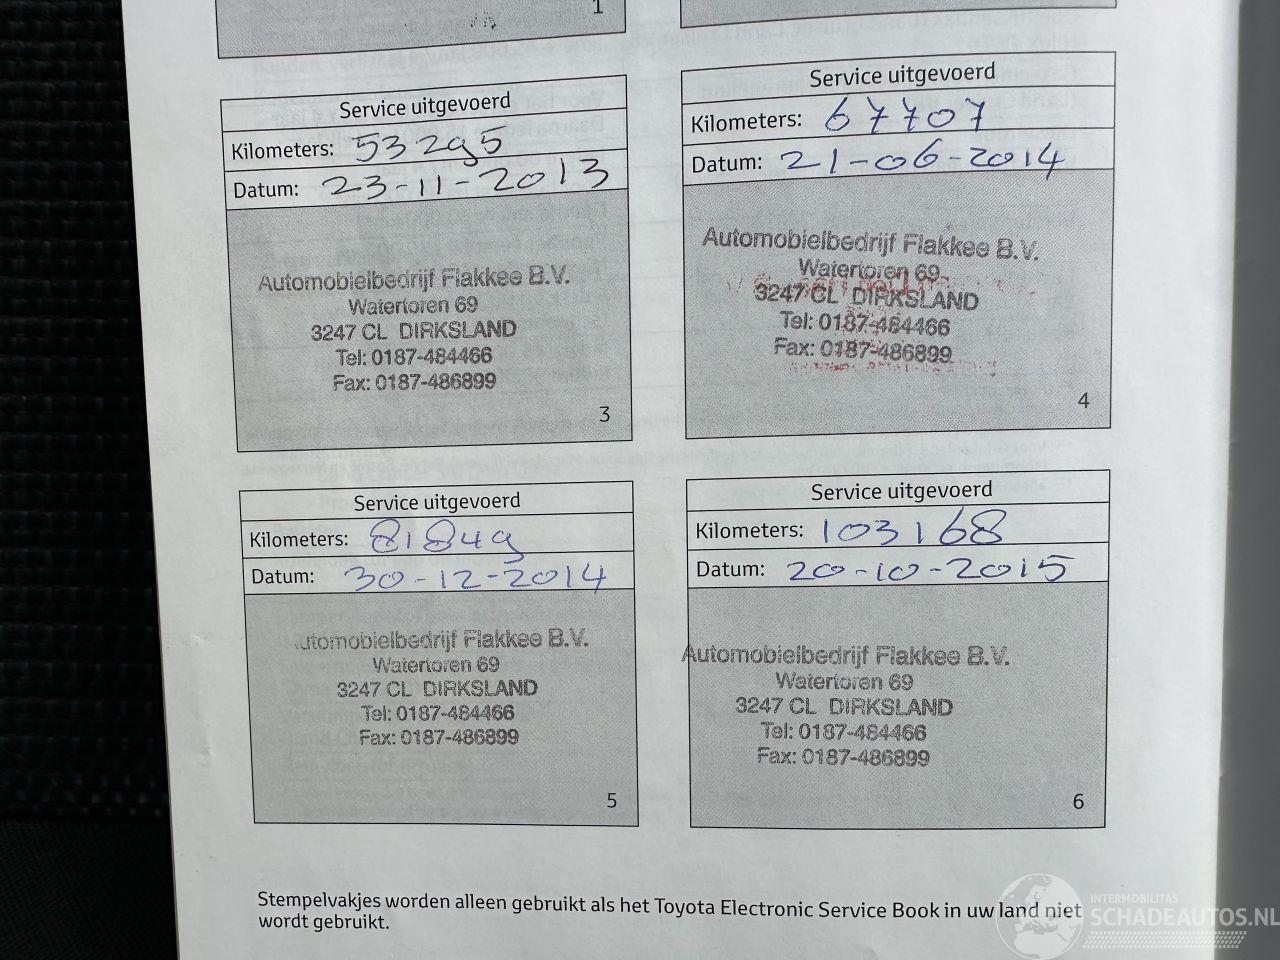 1
Service uitgevoerd
Kilometers: 53295
Datum: 23-11-2013
Automobielbedrijf Flakkee B.V.
Watertoren 69
3247 CL DIRKSLAND
Tel: 0187-484466
Fax: 0187-486899
3
Service uitgevoerd
Kilometers: 67707
Datum: 21-06-2014
Automobielbedrijf Flakkee B.V.
Watertoren 69
3247 CL DIRKSLAND
Tel: 0187-484466
Fax: 0187-486899
4
Service uitgevoerd
Kilometers: 81849
Datum: 30-12-2014
Automobielbedrijf Flakkee B.V.
Watertoren 69
3247 CL DIRKSLAND
Tel: 0187-484466
Fax: 0187-486899
5
Service uitgevoerd
Kilometers: 103168
Datum: 20-10-2015
Automobielbedrijf Flakkee B.V.
Watertoren 69
3247 CL DIRKSLAND
Tel: 0187-484466
Fax: 0187-486899
6
Stempelvakjes worden alleen gebruikt als het Toyota Electronic Service Book in uw land niet
wordt gebruikt.
INTERMOBILITAS
SCHADEAUTOS.NL